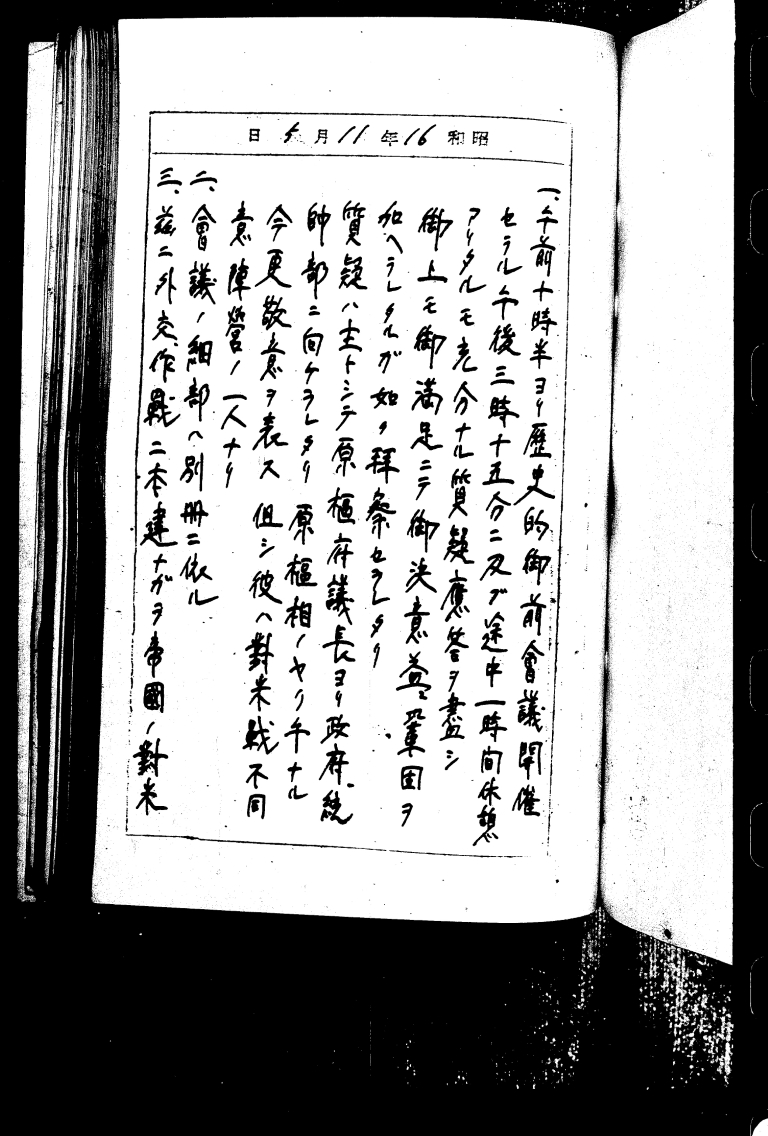 昭和16年11月5日
一、午前十時半ヨリ歴史的御前會議開催
セラル午後三時十五分ニ及ブ途中一時間休憩
アリタルモ充分ナル質疑應答ヲ盡シ
御上モ御滿足ニテ御決意益々鞏固ヲ
加ヘラレタルガ如ク拜察セラレタリ
質疑ハ主トシテ原樞府議長ヨリ政府、統
帥部ニ向ケラレタリ 原樞相ノヤリ手ナル
今更敬意ヲ表ス 但シ彼ハ對米戰不同
意陣營ノ一人ナリ
二、會議ノ細部ハ別冊ニ依ル
三、茲ニ外交、作戰二本建ナガラ帝國ノ對米